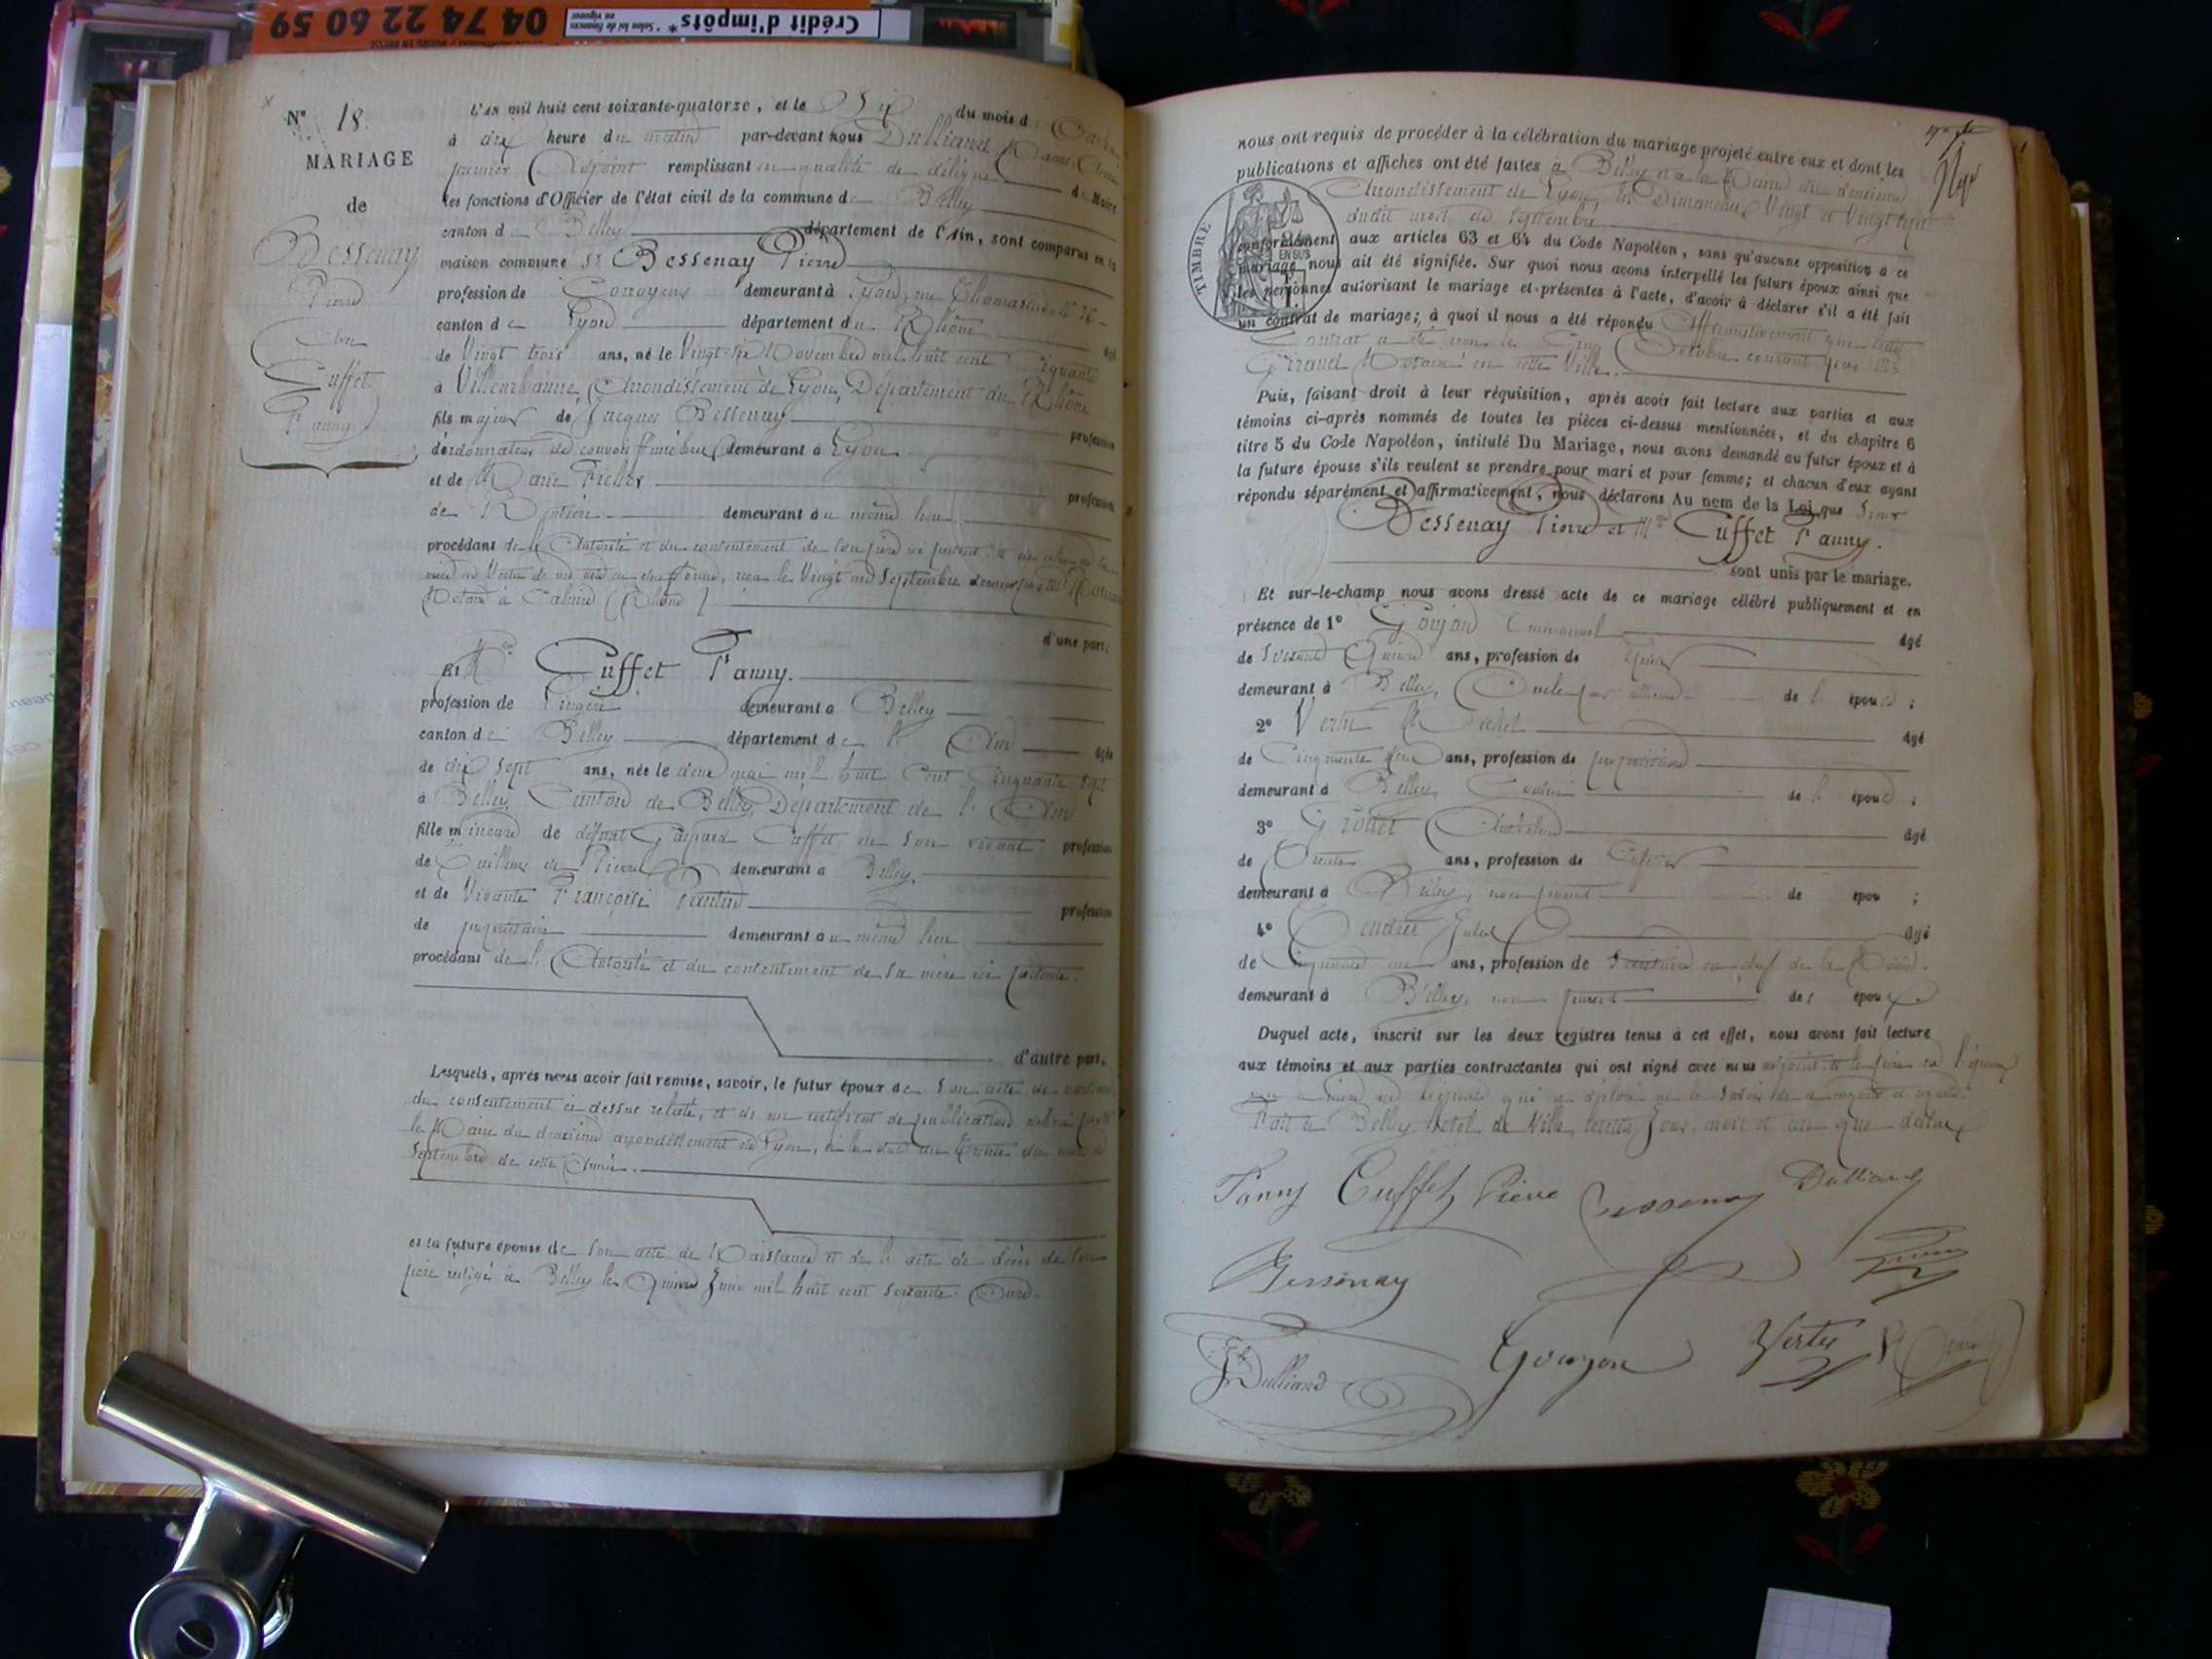 04 74 22 60 59
Crédit d'impôts*
* Selon loi de finances
en vigueur
N° 18.
MARIAGE
de
Bessenay
Pierre
Et
Cuffet
Fanny
L'AN mil huit cent soixante-quatorze, et le Six du mois d'Octobre
à dix heure du matin par-devant nous Dulliand
premier Adjoint remplissant en qualité de délégué du Maire
les fonctions d'Officier de l'état civil de la commune de Belley
canton de Belley département de l'Ain, sont comparus en la
maison commune Sr Bessenay Pierre
profession de Corroyeur demeurant à Lyon, rue Thomassin, N°
canton de Lyon département du Rhône âgé
de Vingt trois ans, né le Vingt Novembre mil huit cent Cinquante
à Villeurbanne, Arrondissement de Lyon, Département du Rhône
fils majeur de Jacques Bessenay profession
d'ordonnateur de convois funèbres demeurant à Lyon
et de Marie profession
de Rentière demeurant au même lieu
procédant de l'Autorité et du consentement de son père ici présent et de celui de la
mère en Vertu de reçu le Vingt Septembre dernier par Me
Notaire à Caluire (Rhône)
d'une part;
Et Mlle Cuffet Fanny.
profession de Lingère demeurant à Belley
canton de Belley département de l'Ain âgée
de dix sept ans, née le mai mil huit Cent Cinquante Sept
à Belley, Canton de Belley, Département de l'Ain
fille mineure de défunt Gaspard Cuffet, en son vivant profession
de Tailleur de Pierre demeurant à Belley,
et de Vivante Françoise Pantin profession
de propriétaire demeurant au même lieu
procédant de l'Autorité et du consentement de sa mère ici présente.
d'autre part.
Lesquels, après nous avoir fait remise, savoir, le futur époux de Son acte de naissance
du consentement ci dessus relaté, et de un certificat de publications délivré par
le Maire du deuxième arrondissement de Lyon, à la date du Trente du mois de
Septembre de cette Année.
et la future épouse de Son acte de Naissance et de l'acte de décès de Son
père rédigé à Belley le Quinze Juin mil huit cent Soixante Onze.
nous ont requis de procéder à la célébration du mariage projeté entre eux et dont les
publications et affiches ont été faites à Belley et à la Mairie du deuxième
Arrondissement de Lyon, les Dimanches Vingt et Vingt sept
dudit mois de septembre
conformément aux articles 63 et 64 du Code Napoléon, sans qu'aucune opposition à ce
mariage nous ait été signifiée. Sur quoi nous avons interpellé les futurs époux ainsi que
les personnes autorisant le mariage et présentes à l'acte, d'avoir à déclarer s'il a été fait
un contrat de mariage; à quoi il nous a été répondu Affirmativement que ledit
Contrat a été reçu le Cinq Octobre courant par Me
Girand Notaire en cette Ville.
TIMBRE
EN SUS
Puis, faisant droit à leur réquisition, après avoir fait lecture aux parties et aux
témoins ci-après nommés de toutes les pièces ci-dessus mentionnées, et du chapitre 6
titre 5 du Code Napoléon, intitulé Du Mariage, nous avons demandé au futur époux et à
la future épouse s'ils veulent se prendre pour mari et pour femme; et chacun d'eux ayant
répondu séparément et affirmativement, nous déclarons Au nom de la Loi que Sieur
Bessenay Pierre et Mlle Cuffet Fanny.
sont unis par le mariage.
Et sur-le-champ nous avons dressé acte de ce mariage célébré publiquement et en
présence de 1° Goujon Emmanuel âgé
de Soixante Quinze ans, profession de
demeurant à Belley, Oncle par alliance de l'épouse;
2° Vertu Michel âgé
de Cinquante deux ans, profession de propriétaire
demeurant à Belley Cousin de l'épouse;
3° Grollet Anthelme âgé
de Trente ans, profession de Cafetier
demeurant à Belley, non parent de épou ;
4° Jules âgé
de Cinquante un ans, profession de Secrétaire en chef de la Mairie.
demeurant à Belley, non parent des époux
Duquel acte, inscrit sur les deux registres tenus à cet effet, nous avons fait lecture
aux témoins et aux parties contractantes qui ont signé avec nous adjoint et le père de l'époux
la mère de l'épouse qui a déclaré ne le savoir de ce enquise et requise.
Fait à Belley Hotel de Ville, lesdits Jour, mois et an que dessus
Fanny Cuffet Pierre Bessenay Dulliand
Bessenay
Dulliand Goujon Vertu